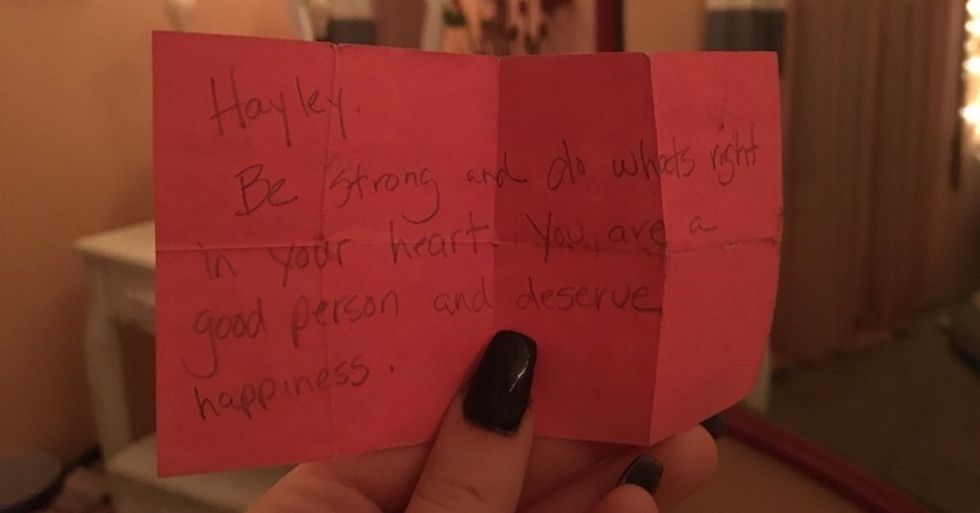 Hayley.
Be strong and do whats right
in your heart. You are a
good person and deserve
happiness.